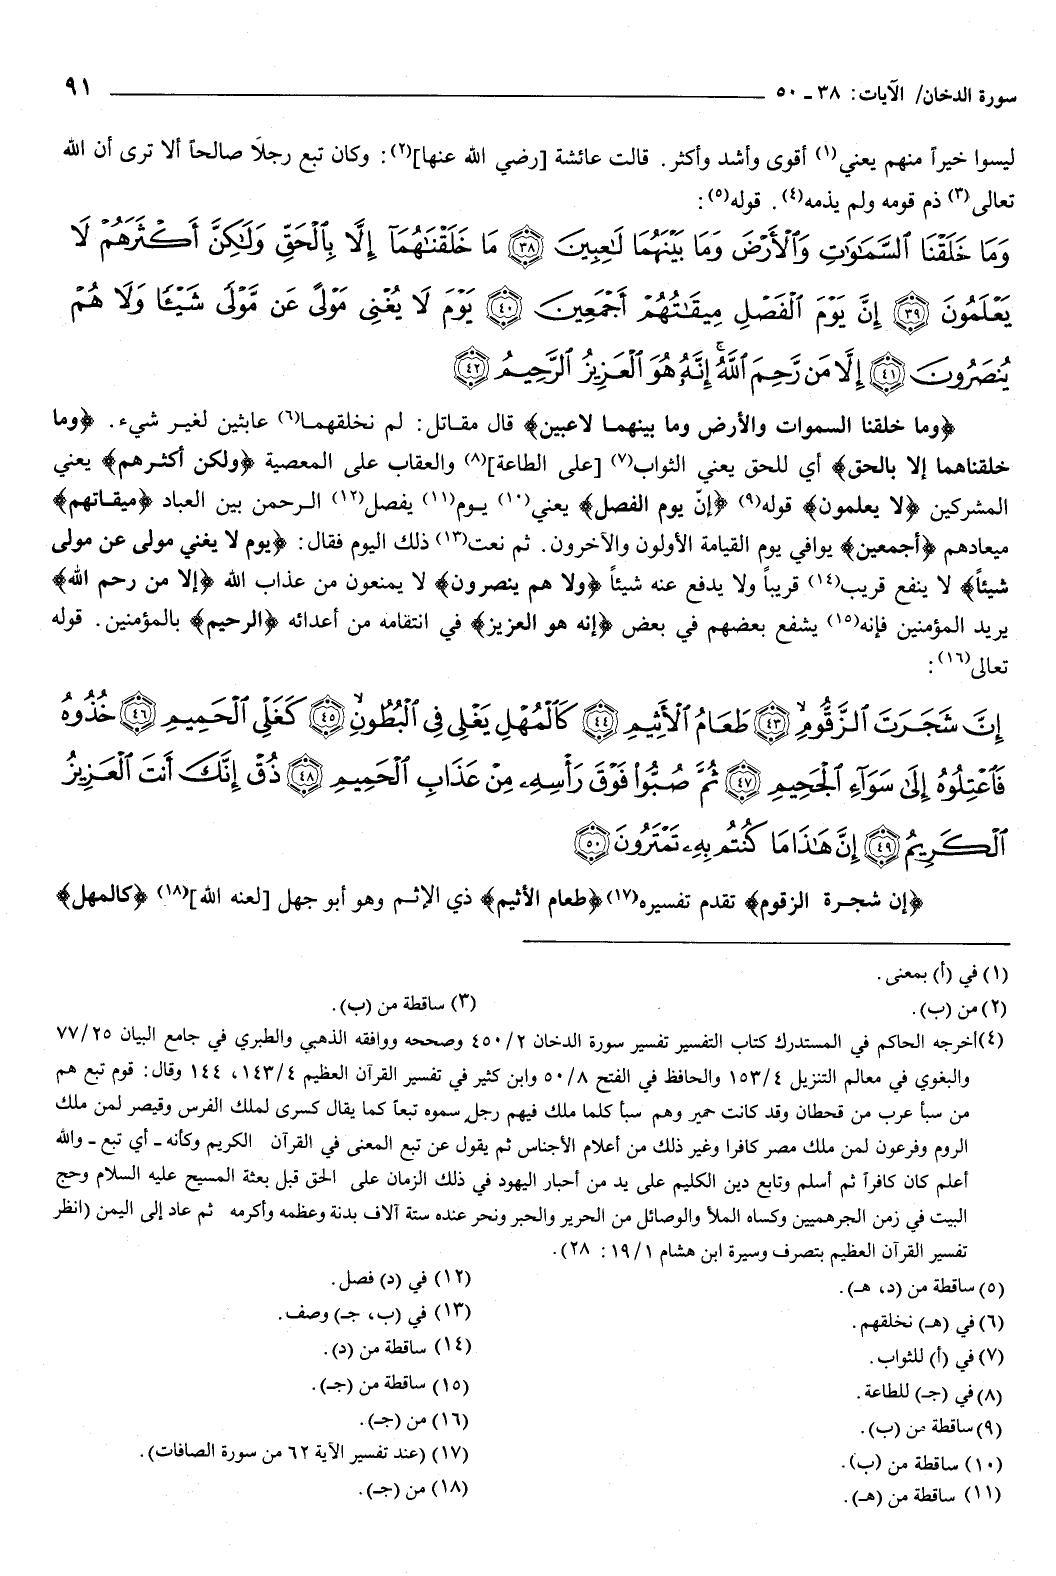 سورة الدخان/ الآيات: ٣٨ ـ ٥٠ ٩١
ليسوا خيراً منهم يعني(١) أقوى وأشد وأكثر. قالت عائشة [رضي الله عنها](٢): وكان تبع رجلاً صالحاً ألا ترى أن الله
تعالى(٣) ذم قومه ولم يذمه(٤). قوله(٥):
وَمَا خَلَقْنَا ٱلسَّمَٰوَٰتِ وَٱلْأَرْضَ وَمَا بَيْنَهُمَا لَٰعِبِينَ ﴿٣٨﴾ مَا خَلَقْنَٰهُمَآ إِلَّا بِٱلْحَقِّ وَلَٰكِنَّ أَكْثَرَهُمْ لَا
يَعْلَمُونَ ﴿٣٩﴾ إِنَّ يَوْمَ ٱلْفَصْلِ مِيقَٰتُهُمْ أَجْمَعِينَ ﴿٤٠﴾ يَوْمَ لَا يُغْنِى مَوْلًى عَن مَّوْلًى شَيْـًٔا وَلَا هُمْ
يُنصَرُونَ ﴿٤١﴾ إِلَّا مَن رَّحِمَ ٱللَّهُ ۚ إِنَّهُۥ هُوَ ٱلْعَزِيزُ ٱلرَّحِيمُ ﴿٤٢﴾
﴿وما خلقنا السموات والأرض وما بينهما لاعبين﴾ قال مقاتل: لم نخلقهما(٦) عابثين لغير شيء. ﴿وما
خلقناهما إلا بالحق﴾ أي للحق يعني الثواب(٧) [على الطاعة](٨) والعقاب على المعصية ﴿ولكن أكثرهم﴾ يعني
المشركين ﴿لا يعلمون﴾ قوله(٩) ﴿إنّ يوم الفصل﴾ يعني(١٠) يوم(١١) يفصل(١٢) الرحمن بين العباد ﴿ميقاتهم﴾
ميعادهم ﴿أجمعين﴾ يوافي يوم القيامة الأولون والآخرون. ثم نعت(١٣) ذلك اليوم فقال: ﴿يوم لا يغني مولى عن مولى
شيئاً﴾ لا ينفع قريب(١٤) قريباً ولا يدفع عنه شيئاً ﴿ولا هم ينصرون﴾ لا يمنعون من عذاب الله ﴿إلا من رحم الله﴾
يريد المؤمنين فإنه(١٥) يشفع بعضهم في بعض ﴿إنه هو العزيز﴾ في انتقامه من أعدائه ﴿الرحيم﴾ بالمؤمنين. قوله
تعالى(١٦):
إِنَّ شَجَرَتَ ٱلزَّقُّومِ ﴿٤٣﴾ طَعَامُ ٱلْأَثِيمِ ﴿٤٤﴾ كَٱلْمُهْلِ يَغْلِى فِى ٱلْبُطُونِ ﴿٤٥﴾ كَغَلْىِ ٱلْحَمِيمِ ﴿٤٦﴾ خُذُوهُ
فَٱعْتِلُوهُ إِلَىٰ سَوَآءِ ٱلْجَحِيمِ ﴿٤٧﴾ ثُمَّ صُبُّوا۟ فَوْقَ رَأْسِهِۦ مِنْ عَذَابِ ٱلْحَمِيمِ ﴿٤٨﴾ ذُقْ إِنَّكَ أَنتَ ٱلْعَزِيزُ
ٱلْكَرِيمُ ﴿٤٩﴾ إِنَّ هَٰذَا مَا كُنتُم بِهِۦ تَمْتَرُونَ ﴿٥٠﴾
﴿إن شجرة الزقوم﴾ تقدم تفسيره(١٧) ﴿طعام الأثيم﴾ ذي الإثم وهو أبو جهل [لعنه الله](١٨) ﴿كالمهل﴾
(١) في (أ) بمعنى.
(٢) من (ب). (٣) ساقطة من (ب).
(٤) أخرجه الحاكم في المستدرك كتاب التفسير تفسير سورة الدخان ٤٥٠/٢ وصححه ووافقه الذهبي والطبري في جامع البيان ٧٧/٢٥
والبغوي في معالم التنزيل ١٥٣/٤ والحافظ في الفتح ٥٠/٨ وابن كثير في تفسير القرآن العظيم ١٤٣/٤، ١٤٤ وقال: قوم تبع هم
من سبأ عرب من قحطان وقد كانت حمير وهم سبأ كلما ملك فيهم رجل سموه تبعاً كما يقال كسرى لملك الفرس وقيصر لمن ملك
الروم وفرعون لمن ملك مصر كافرا وغير ذلك من أعلام الأجناس ثم يقول عن تبع المعنى في القرآن الكريم وكأنه ـ أي تبع ـ والله
أعلم كان كافراً ثم أسلم وتابع دين الكليم على يد من أحبار اليهود في ذلك الزمان على الحق قبل بعثة المسيح عليه السلام وحج
البيت في زمن الجرهميين وكساه الملأ والوصائل من الحرير والحبر ونحر عنده ستة آلاف بدنة وعظمه وأكرمه ثم عاد إلى اليمن (انظر
تفسير القرآن العظيم بتصرف وسيرة ابن هشام ١٩/١: ٢٨).
(٥) ساقطة من (د، هـ).
(٦) في (هـ) نخلقهم.
(٧) في (أ) للثواب.
(٨) في (جـ) للطاعة.
(٩) ساقطة من (ب).
(١٠) ساقطة من (ب).
(١١) ساقطة من (هـ).
(١٢) في (د) فصل.
(١٣) في (ب، جـ) وصف.
(١٤) ساقطة من (د).
(١٥) ساقطة من (جـ).
(١٦) من (جـ).
(١٧) (عند تفسير الآية ٦٢ من سورة الصافات).
(١٨) من (جـ).